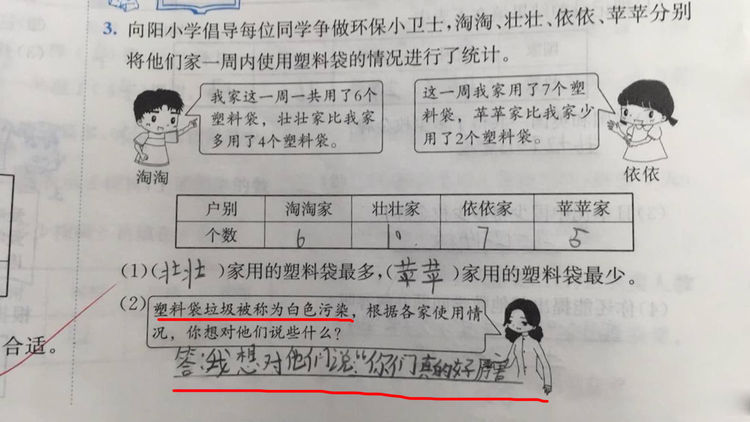 3. 向阳小学倡导每位同学争做环保小卫士,淘淘、壮壮、依依、苹苹分别
将他们家一周内使用塑料袋的情况进行了统计。
我家这一周一共用了6个
塑料袋,壮壮家比我家
多用了4个塑料袋。
淘淘
这一周我家用了7个塑
料袋,苹苹家比我家少
用了2个塑料袋。
依依
户别 淘淘家 壮壮家 依依家 苹苹家
个数 6 10 7 5
(1)(壮壮)家用的塑料袋最多,(苹苹)家用的塑料袋最少。
(2) 塑料袋垃圾被称为白色污染,根据各家使用情
况,你想对他们说些什么?
答:我想对他们说:“你们真的好厉害
合适。